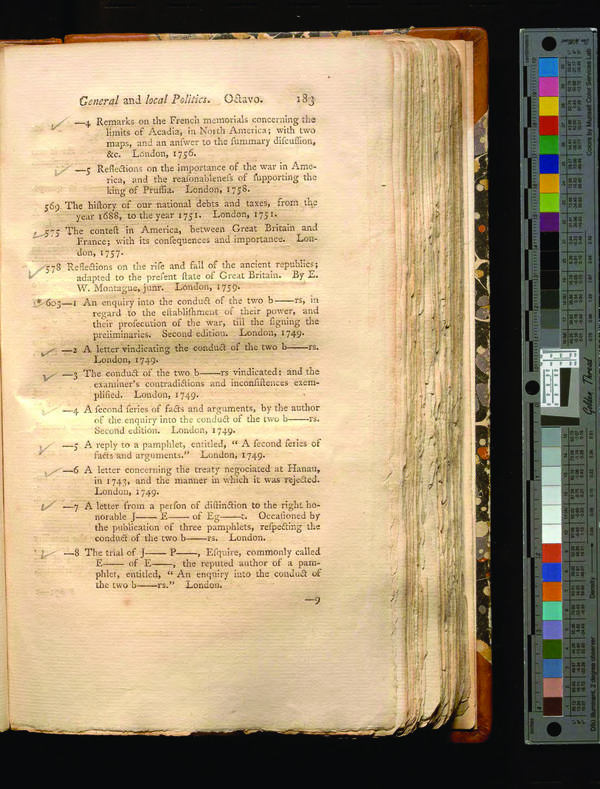 General and local Politics. Octavo. 183
—4 Remarks on the French memorials concerning the
limits of Acadia, in North America; with two
maps, and an anſwer to the ſummary diſcuſſion,
&c. London, 1756.
—5 Reflections on the importance of the war in Ame-
rica, and the reaſonableneſs of ſupporting the
king of Pruſſia. London, 1758.
569 The hiſtory of our national debts and taxes, from the
year 1688, to the year 1751. London, 1751.
575 The conteſt in America, between Great Britain and
France; with its conſequences and importance. Lon-
don, 1757.
578 Reflections on the riſe and fall of the ancient republics;
adapted to the preſent ſtate of Great Britain. By E.
W. Montague, junr. London, 1759.
603—1 An enquiry into the conduct of the two b——rs, in
regard to the eſtabliſhment of their power, and
their proſecution of the war, till the ſigning the
preliminaries. Second edition. London, 1749.
—2 A letter vindicating the conduct of the two b——rs.
London, 1749.
—3 The conduct of the two b——rs vindicated; and the
examiner's contradictions and inconſiſtences exem-
plified. London, 1749.
—4 A ſecond ſeries of facts and arguments, by the author
of the enquiry into the conduct of the two b——rs.
Second edition. London, 1749.
—5 A reply to a pamphlet, entitled, " A ſecond ſeries of
facts and arguments." London, 1749.
—6 A letter concerning the treaty negociated at Hanau,
in 1743, and the manner in which it was rejected.
London, 1749.
—7 A letter from a perſon of diſtinction to the right ho-
norable J—— E—— of Eg——t. Occaſioned by
the publication of three pamphlets, reſpecting the
conduct of the two b——rs. London.
—8 The trial of J—— P——, Eſquire, commonly called
E—— of E——, the reputed author of a pam-
phlet, entitled, " An enquiry into the conduct of
the two b——rs." London.
—9
Colors by Munsell Color Services Lab
Golden Thread
Density
D50 Illuminant, 2 degree observer